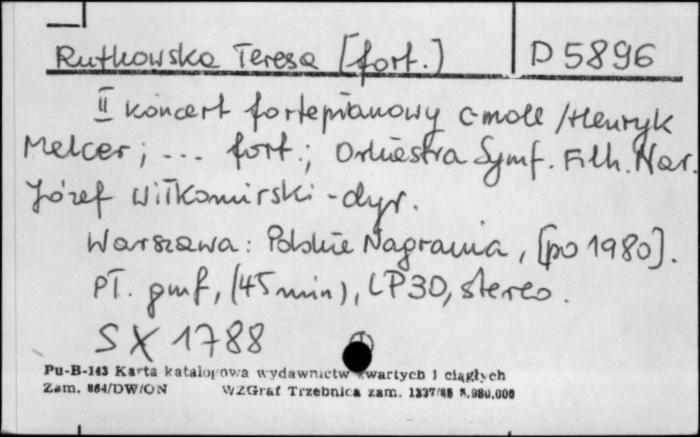 Rutkowska Teresa [fort.] D 5896
II koncert fortepianowy c-moll / Henryk
Melcer; ... fort.; Orkiestra Symf. Filh. Nar.
Józef Wiłkomirski - dyr.
Warszawa: Polskie Nagrania, [po 1980].
PŁ. gmf, (45 min), LP30, stereo.
SX 1788
Pu-B-143 Karta katalogowa wydawnictw zwartych i ciągłych
Zam. 864/DW/ON WZGraf Trzebnica zam. 1337/85 5.980.000